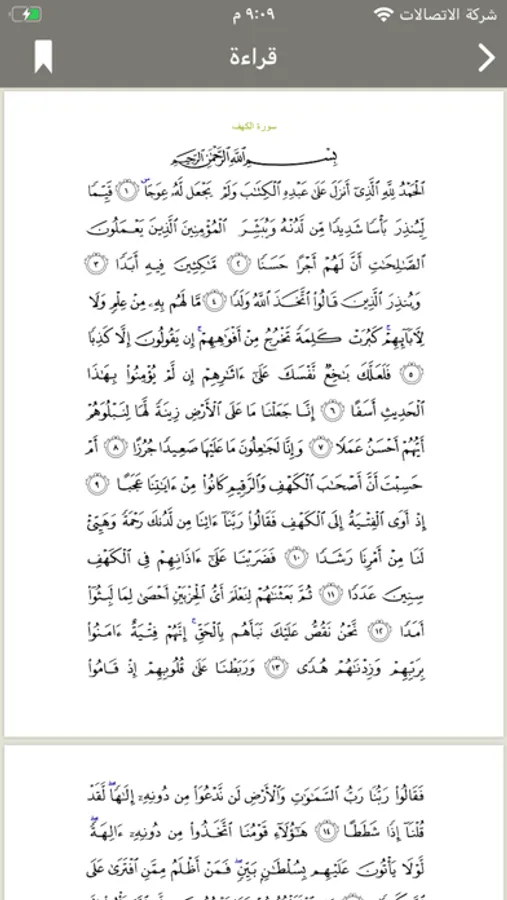 شركة الاتصالات
٩:٠٩ م
قراءة
سورة الكهف
بِسْمِ اللَّهِ الرَّحْمَٰنِ الرَّحِيمِ
الْحَمْدُ لِلَّهِ الَّذِي أَنزَلَ عَلَىٰ عَبْدِهِ الْكِتَابَ وَلَمْ يَجْعَل لَّهُ عِوَجًا ۜ ﴿١﴾ قَيِّمًا
لِّيُنذِرَ بَأْسًا شَدِيدًا مِّن لَّدُنْهُ وَيُبَشِّرَ الْمُؤْمِنِينَ الَّذِينَ يَعْمَلُونَ
الصَّالِحَاتِ أَنَّ لَهُمْ أَجْرًا حَسَنًا ﴿٢﴾ مَّاكِثِينَ فِيهِ أَبَدًا ﴿٣﴾
وَيُنذِرَ الَّذِينَ قَالُوا اتَّخَذَ اللَّهُ وَلَدًا ﴿٤﴾ مَّا لَهُم بِهِ مِنْ عِلْمٍ وَلَا
لِآبَائِهِمْ ۚ كَبُرَتْ كَلِمَةً تَخْرُجُ مِنْ أَفْوَاهِهِمْ ۚ إِن يَقُولُونَ إِلَّا كَذِبًا
﴿٥﴾ فَلَعَلَّكَ بَاخِعٌ نَّفْسَكَ عَلَىٰ آثَارِهِمْ إِن لَّمْ يُؤْمِنُوا بِهَٰذَا
الْحَدِيثِ أَسَفًا ﴿٦﴾ إِنَّا جَعَلْنَا مَا عَلَى الْأَرْضِ زِينَةً لَّهَا لِنَبْلُوَهُمْ
أَيُّهُمْ أَحْسَنُ عَمَلًا ﴿٧﴾ وَإِنَّا لَجَاعِلُونَ مَا عَلَيْهَا صَعِيدًا جُرُزًا ﴿٨﴾ أَمْ
حَسِبْتَ أَنَّ أَصْحَابَ الْكَهْفِ وَالرَّقِيمِ كَانُوا مِنْ آيَاتِنَا عَجَبًا ﴿٩﴾
إِذْ أَوَى الْفِتْيَةُ إِلَى الْكَهْفِ فَقَالُوا رَبَّنَا آتِنَا مِن لَّدُنكَ رَحْمَةً وَهَيِّئْ
لَنَا مِنْ أَمْرِنَا رَشَدًا ﴿١٠﴾ فَضَرَبْنَا عَلَىٰ آذَانِهِمْ فِي الْكَهْفِ
سِنِينَ عَدَدًا ﴿١١﴾ ثُمَّ بَعَثْنَاهُمْ لِنَعْلَمَ أَيُّ الْحِزْبَيْنِ أَحْصَىٰ لِمَا لَبِثُوا
أَمَدًا ﴿١٢﴾ نَّحْنُ نَقُصُّ عَلَيْكَ نَبَأَهُم بِالْحَقِّ ۚ إِنَّهُمْ فِتْيَةٌ آمَنُوا
بِرَبِّهِمْ وَزِدْنَاهُمْ هُدًى ﴿١٣﴾ وَرَبَطْنَا عَلَىٰ قُلُوبِهِمْ إِذْ قَامُوا
فَقَالُوا رَبُّنَا رَبُّ السَّمَاوَاتِ وَالْأَرْضِ لَن نَّدْعُوَ مِن دُونِهِ إِلَٰهًا ۖ لَّقَدْ
قُلْنَا إِذًا شَطَطًا ﴿١٤﴾ هَٰؤُلَاءِ قَوْمُنَا اتَّخَذُوا مِن دُونِهِ آلِهَةً ۖ
لَّوْلَا يَأْتُونَ عَلَيْهِم بِسُلْطَانٍ بَيِّنٍ ۖ فَمَنْ أَظْلَمُ مِمَّنِ افْتَرَىٰ عَلَى